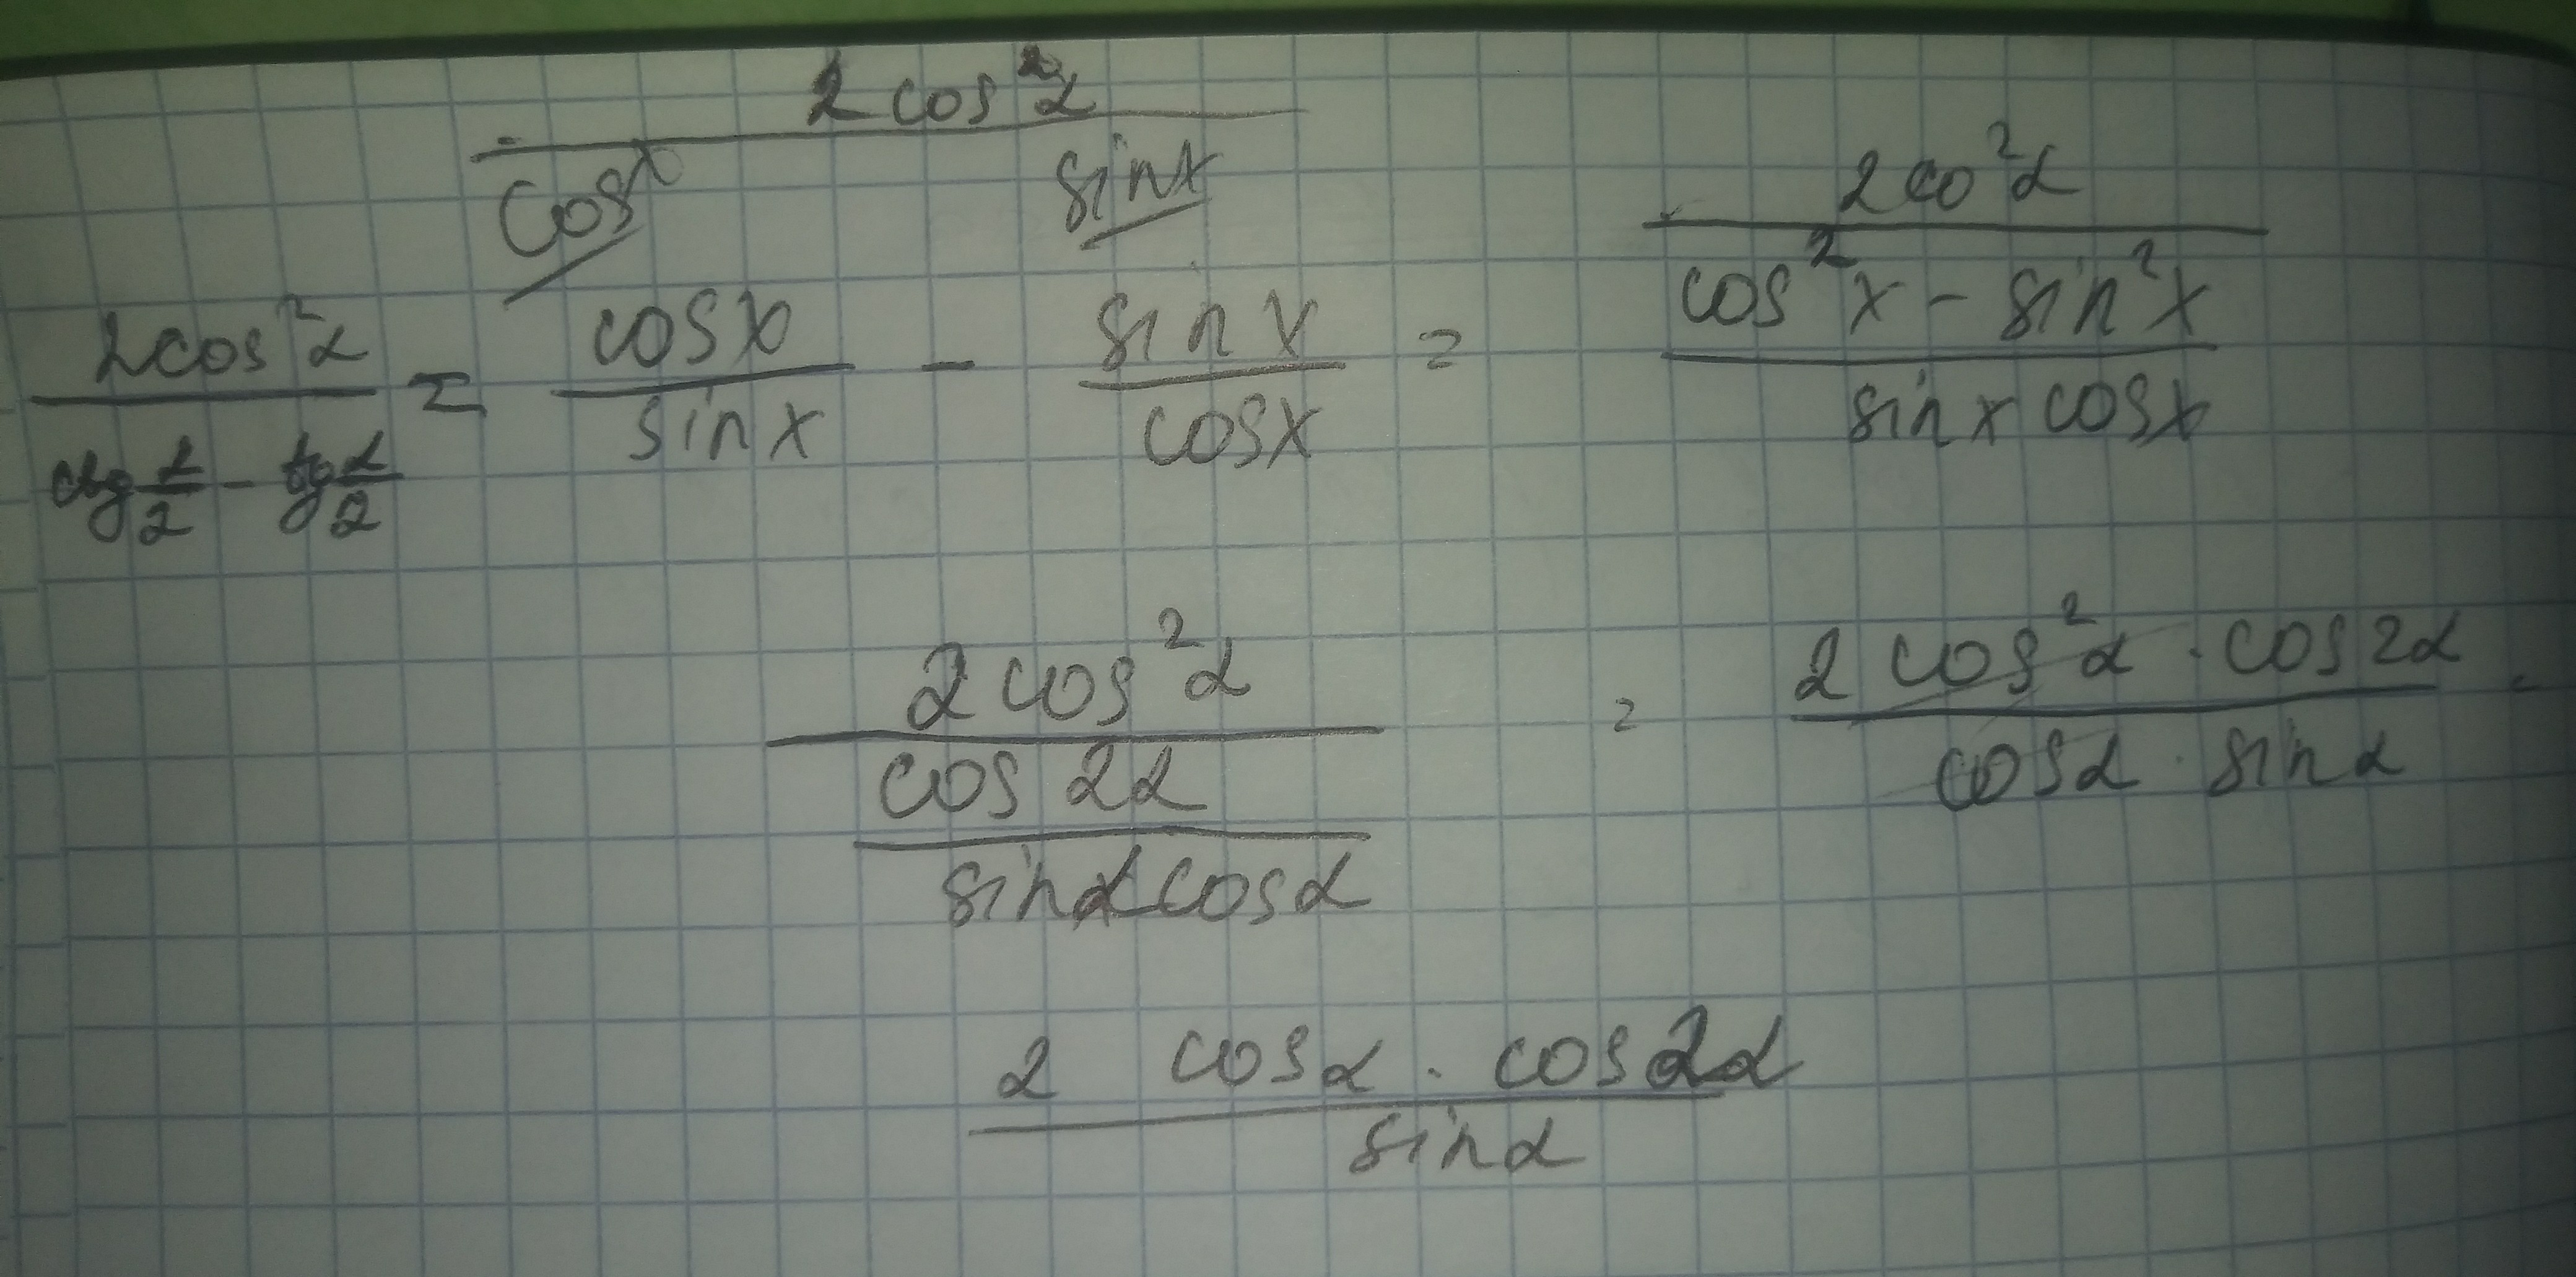 2 cos²α
cosx sinx
2cos²α / (ctg α/2 - tg α/2) = cosx / sinx - sinx / cosx = 2co²α / ((cos²x - sin²x) / (sinx cosx))
2cos²α / (cos2α / (sinα cosα)) = (2 cos²α · cos2α) / (cosα · sinα) =
2 cosα · cos2α
sinα